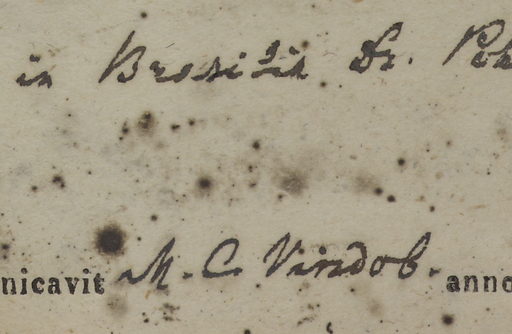 in Brasilia Dr. Poh
nicavit M. C. Vindob. anno